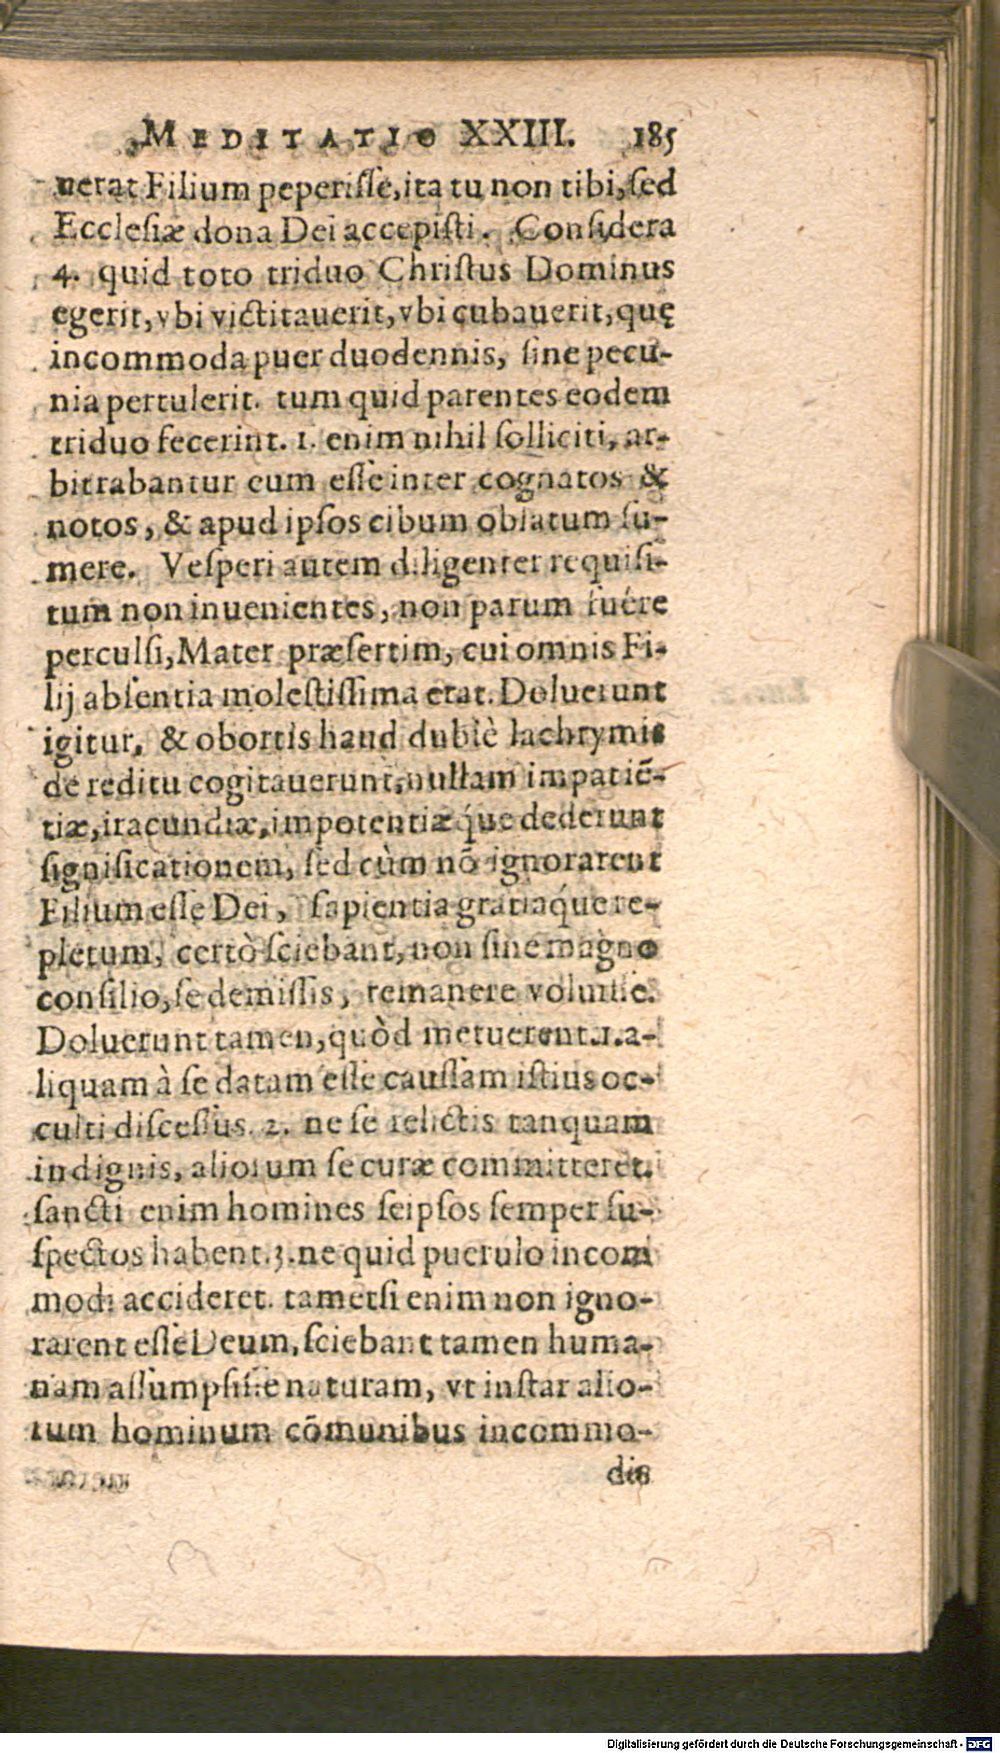 MEDITATIO XXIII. 185
nerat Filium peperisse, ita tu non tibi, sed
Ecclesiæ dona Dei accepisti. Considera
4. quid toto triduo Christus Dominus
egerit, vbi victitauerit, vbi cubauerit, quę
incommoda puer duodennis, sine pecu-
nia pertulerit. tum quid parentes eodem
triduo fecerint. 1. enim nihil solliciti, ar-
bitrabantur eum esse inter cognatos &
notos, & apud ipsos cibum oblatum su-
mere. Vesperi autem diligenter requisi-
tum non inuenientes, non parum fuêre
perculsi, Mater præsertim, cui omnis Fi-
lij absentia molestissima erat. Doluerunt
igitur, & obortis haud dubiè lachrymis
de reditu cogitauerunt, nullam impatiẽ-
tiæ, iracundiæ, impotentiæq́ue dederunt
significationem, sed cùm nõ ignorarent
Filium esse Dei, sapientia gratiaq́ue re-
pletum, certò sciebant, non sine magno
consilio, se demissis, remanere voluisse.
Doluerunt tamen, quòd metuerent. 1. a-
liquam à se datam esse caussam istius oc-
culti discessus. 2. ne se relictis tanquam
indignis, aliorum se curæ committeret.
sancti enim homines seipsos semper su-
spectos habent. 3. ne quid puerulo incom
modi accideret. tametsi enim non igno-
rarent esse Deum, sciebant tamen huma-
nam assumpsisse naturam, vt instar alio-
rum hominum cõmunibus incommo-
dis
Digitalisierung gefördert durch die Deutsche Forschungsgemeinschaft - DFG